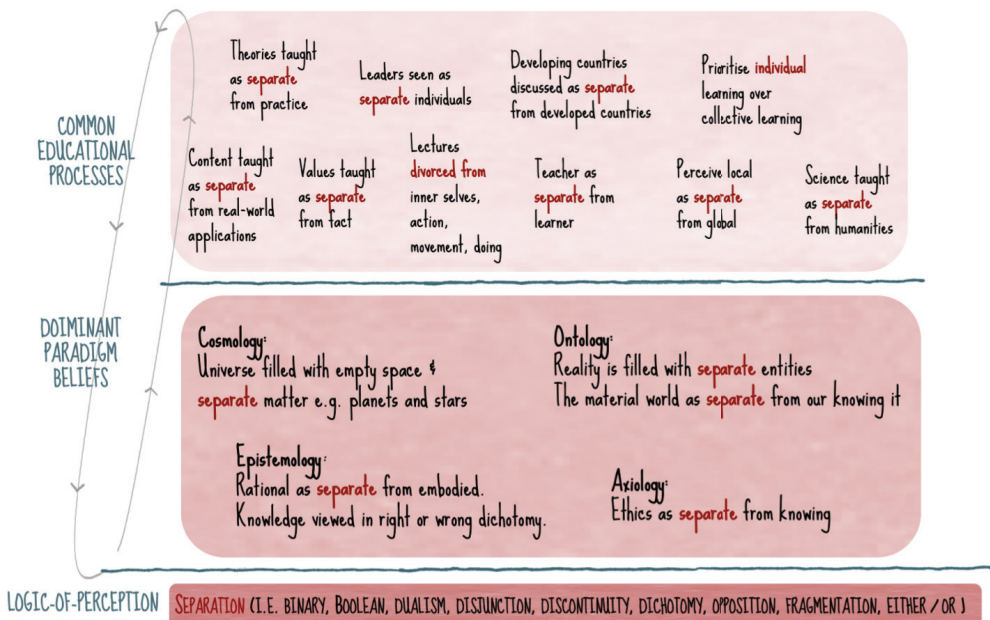 COMMON
EDUCATIONAL
PROCESSES
Theories taught
as separate
from practice
Leaders seen as
separate individuals
Developing countries
discussed as separate
from developed countries
Prioritise individual
learning over
collective learning
Content taught
as separate
from real-world
applications
Values taught
as separate
from fact
Lectures
divorced from
inner selves,
action,
movement, doing
Teacher as
separate from
learner
Perceive local
as separate
from global
Science taught
as separate
from humanities
DOIMINANT
PARADIGM
BELIEFS
Cosmology:
Universe filled with empty space &
separate matter e.g. planets and stars
Ontology:
Reality is filled with separate entities
The material world as separate from our knowing it
Epistemology:
Rational as separate from embodied.
Knowledge viewed in right or wrong dichotomy.
Axiology:
Ethics as separate from knowing
LOGIC-OF-PERCEPTION
SEPARATION (I.E. BINARY, BOOLEAN, DUALISM, DISJUNCTION, DISCONTINUITY, DICHOTOMY, OPPOSITION, FRAGMENTATION, EITHER / OR )